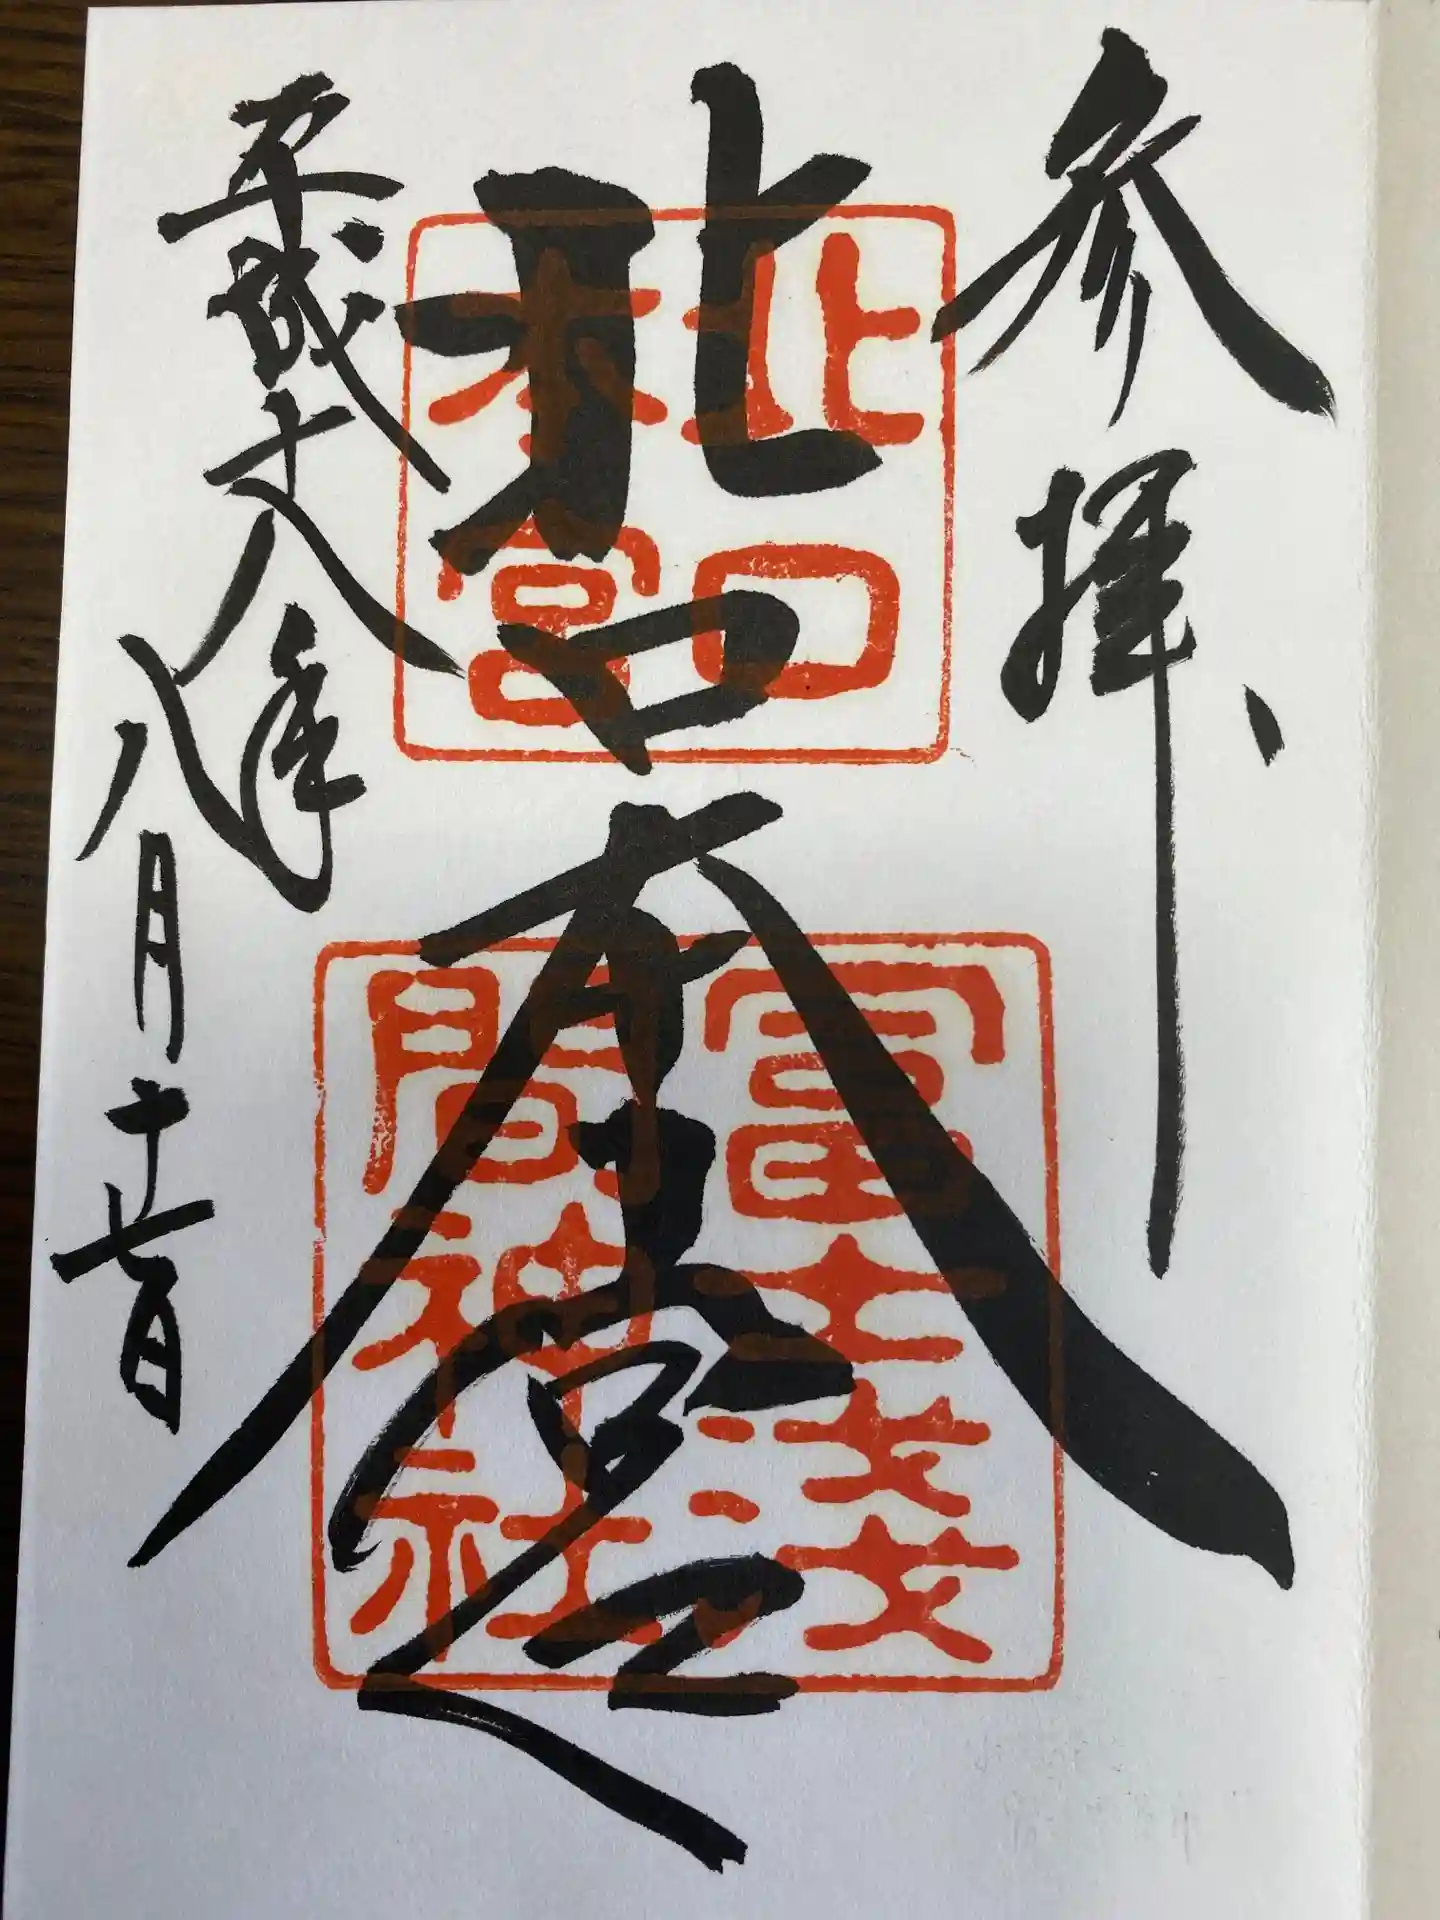 参拝
北口本宮
北口
本宮
冨士淺
間神社
平成十八年
八月十七日